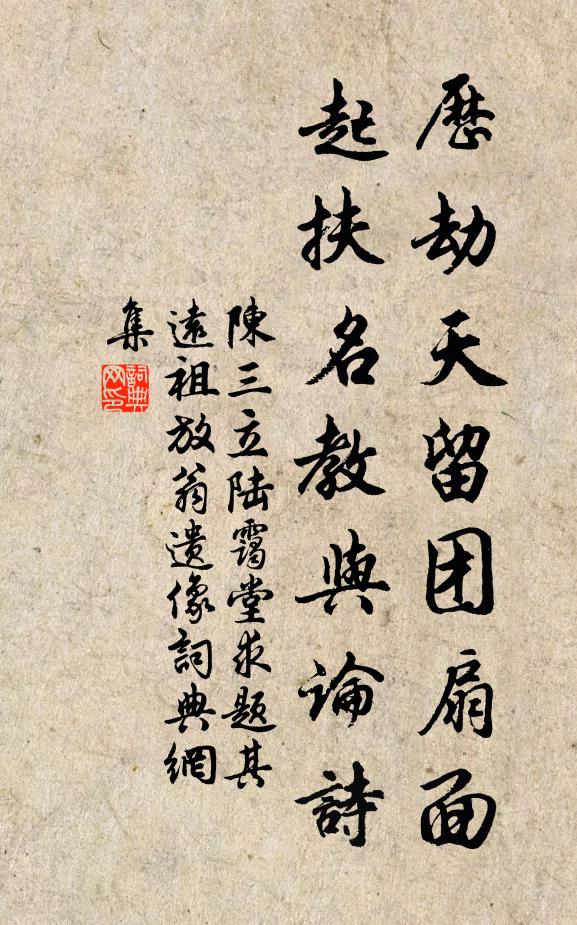 歷劫天留团扇面
起扶名教與論詩
陳三立陆霭堂求题其
遠祖放翁遗像詞典網
集
詞典
网印